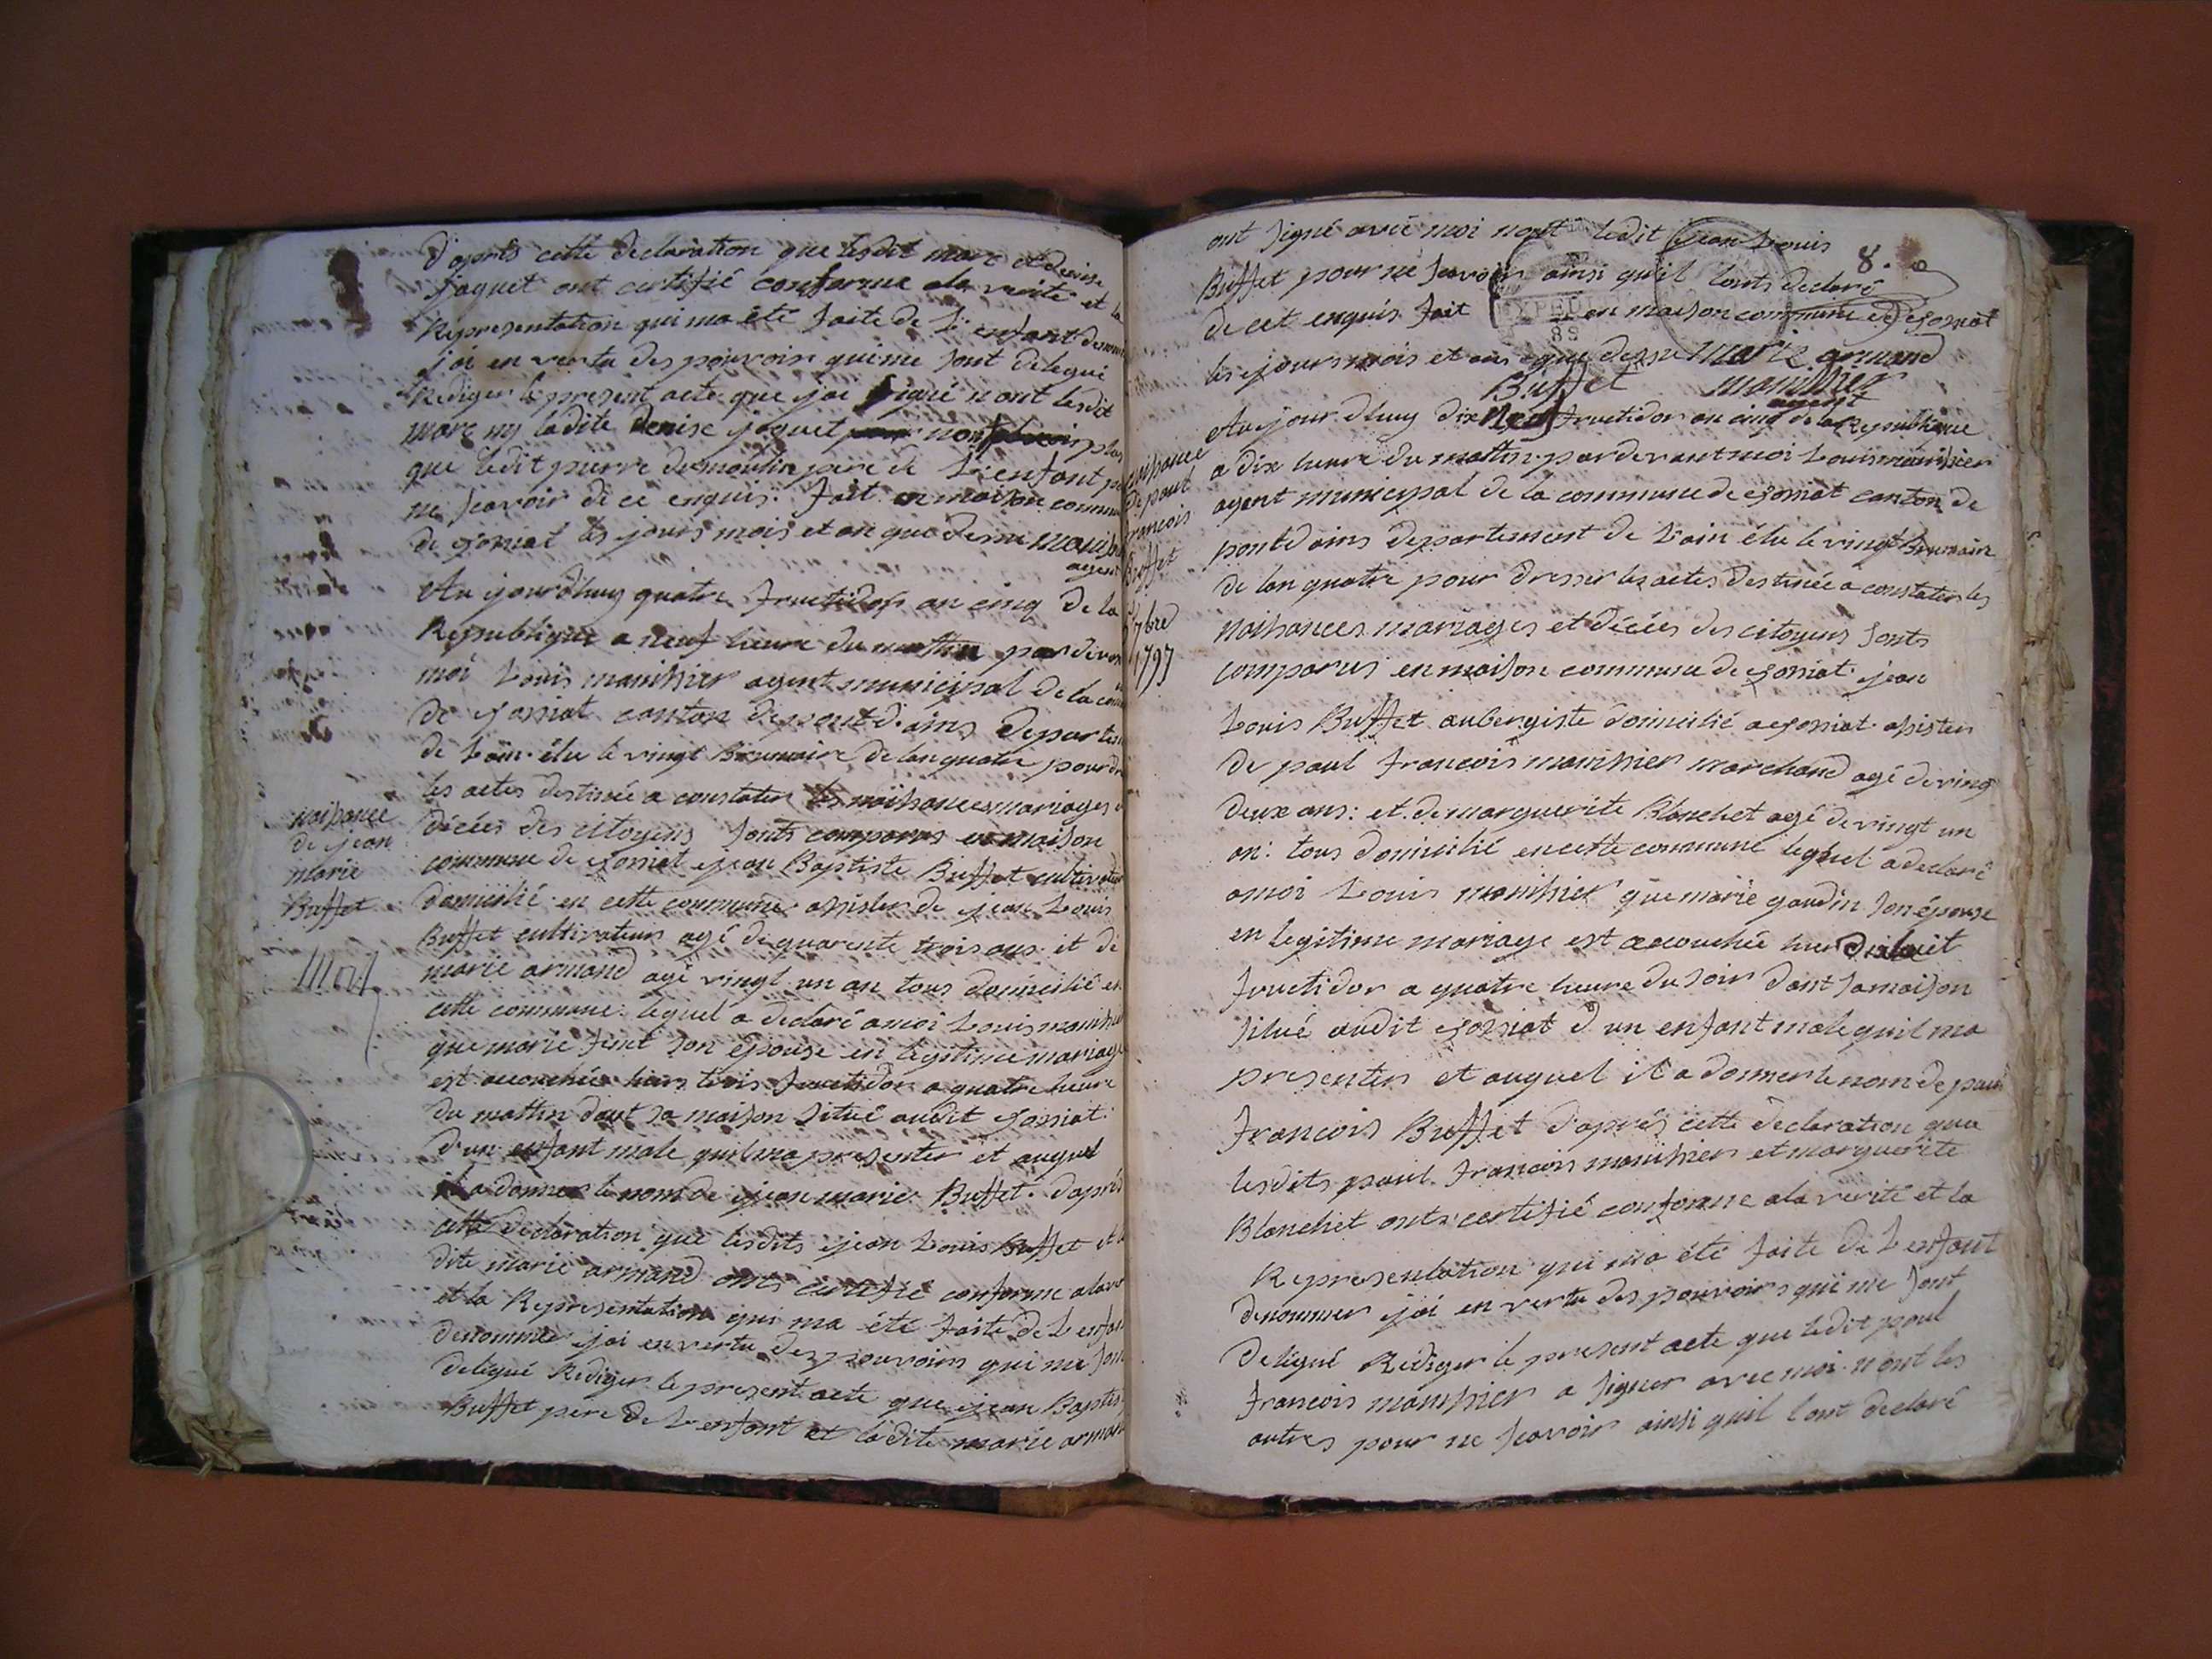 d'après cette declaration que lesdit marc et denise
jaquet ont certifié conforme ala verité et la
Representation qui ma été faite de L'enfant denom
j'ai en vertu des pouvoir qui me sont delegué
Rediger le present acte que jai signé n'ont lesdit
marc ny ladite Denise jaquet non plus
que ledit pierre dumoulin pere de L'enfant p
ne scavoir de ce enquis. fait en maison commu
de jornat les jours mois et an que dessu mani
agent
Au jourdhuy quatre fructidor an cinq de la
Republique a neuf heure du mattin par devan
moi Louis manissier agent municipal de la com
de jornat canton de pont d'ains departem
de Lain élu le vingt Brumaire de lan quatre pour dr
les actes destinée a constater les naissances mariages e
décées des citoyens sonts comparus en maison
commune de jornat jean Baptiste Buffet cultivateur
domicilié en cette commune assister de jean Louis
Buffet cultivateur agé de quarente trois ans et de
marie armand agé vingt un an tous domicilié en
cette commune. lequel a declaré amoi Louis manissier
que marie son épouse en legitime mariage
est accouchée hiers trois fructidor a quatre heure
du mattin dant sa maison situé audit jornat
d'un enfant male quil ma presenter et auquel
il a donner le nom de jean marie Buffet. daprés
cette declaration que lesdits jean Louis Buffet et la
dite marie armand onts certifié conforme ala ve
et la Representation qui ma été faite de L'enfan
denommer jai en vertu des pouvoirs qui me son
delegué Rediger le present acte que jean Baptis
Buffet pere de L'enfant et la dite marie arman
naissance
de jean
marie
Buffet
Mort
ont signé avec moi nont ledit jean Louis
8.
Buffet pour ne scavoir ainsi quil lonts declaré
de cet enquis fait en maison commune de jornat
88
les jours mois et ans que dessu marie armand
Buffet manissier
agent
naissance
de paul
francois
Buffet
7bre
1797
Au jour dhuy dix Neuf fructidor an cinq de la Republique
a dix heure du mattin par devant moi Louis manissier
agent municipal de la commune de jornat canton de
pont dains departement de L'ain élu le vingt Brumaire
de lan quatre pour dresser les actes destinée a constater les
naissances mariages et décées des citoyens sonts
comparus en maison commune de jornat jean
Louis Buffet aubergiste domicilié a jornat assister
de paul francois manissier marchand agé de vingt
deux ans: et de marguerite Blanchet agé de vingt un
an: tous domicilié en cette commune lequel a declaré
amoi Louis manissier que marie gaudin son épouse
en legitime mariage est accouchée hier dixhuit
fructidor a quatre heure du soir dant sa maison
situé audit jornat d'un enfant male quil ma
presenter et auquel il a donner le nom de paul
francois Buffet d'aprés cette declaration que
lesdits paul francois manissier et marguerite
Blanchet onts certifié conforme ala verité et la
Representation qui ma été faite de L'enfant
denommer j'ai en vertu des pouvoirs qui me sont
delegué Rediger le present acte que ledit paul
francois manissier a signer avec moi nont les
autres pour ne scavoir ainsi quil lont declaré